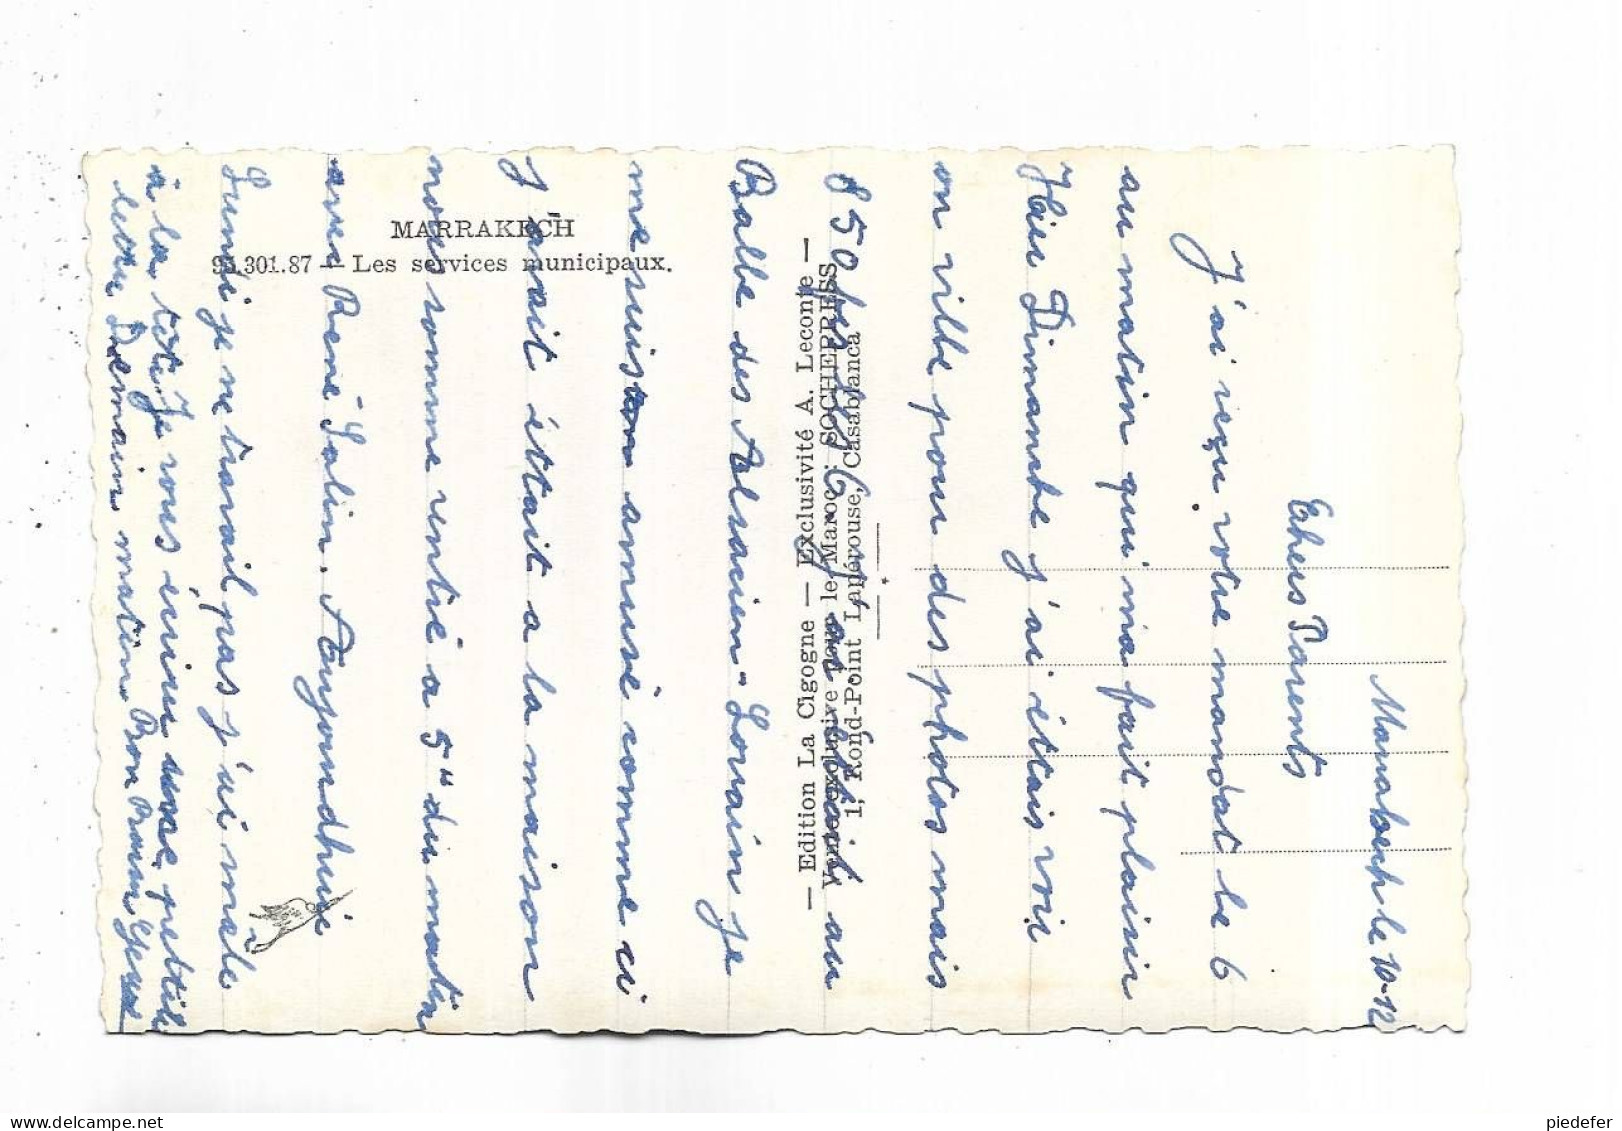 MARRAKECH
95.301.87 — Les services municipaux.
— Edition La Cigogne — Exclusivité A. Leconte —
Vente exclusive pour le Maroc : SOCHEPRESS
1, Rond-Point Lapérouse, Casablanca
Marrakech le 10-12
Chers Parents
J'ai reçu votre mandat le 6
au matin qui m'a fait plaisir
Hier Dimanche j'ai étais voir
en ville pour des photos mais
850 les 6. J'ai étais au
Balle des Alsacien-Lorain je
me suis amusé comme ci
j'avait était a la maison
nous somme rentré a 5" du matin
avec René Solin. Aujourdhuie
Lundi je ne travail pas j'ai male
à la tête Je vous écrirer une petite
lettre Demain matin. Bon Baiser
delcampe.net
piedefer